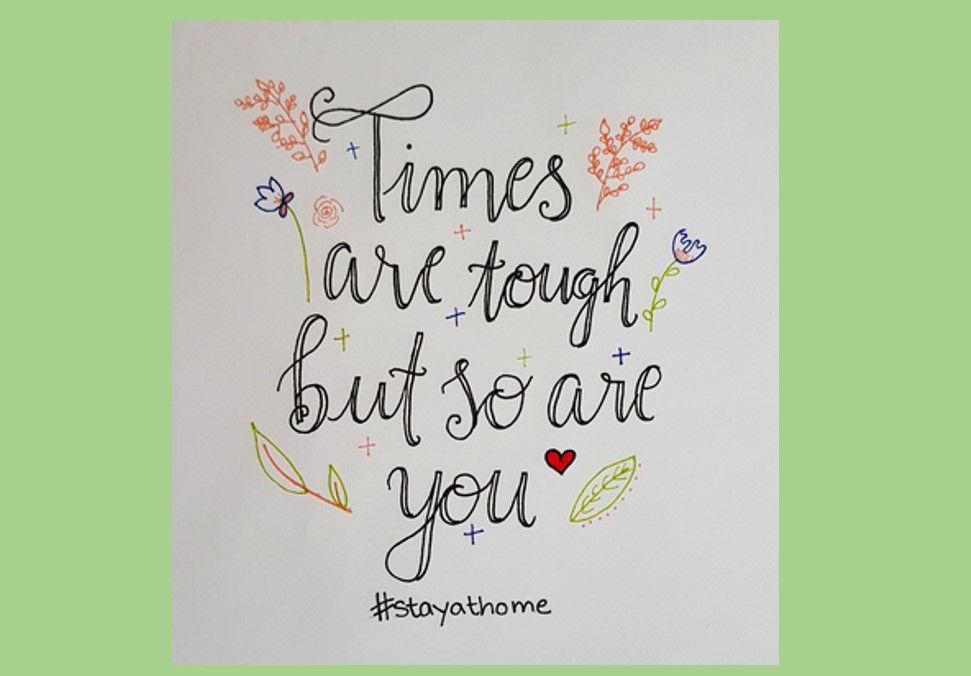 Times
are tough
but so are
you
#stayathome